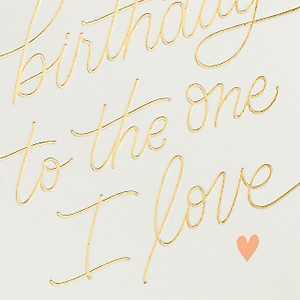 birthday
to the one
I love